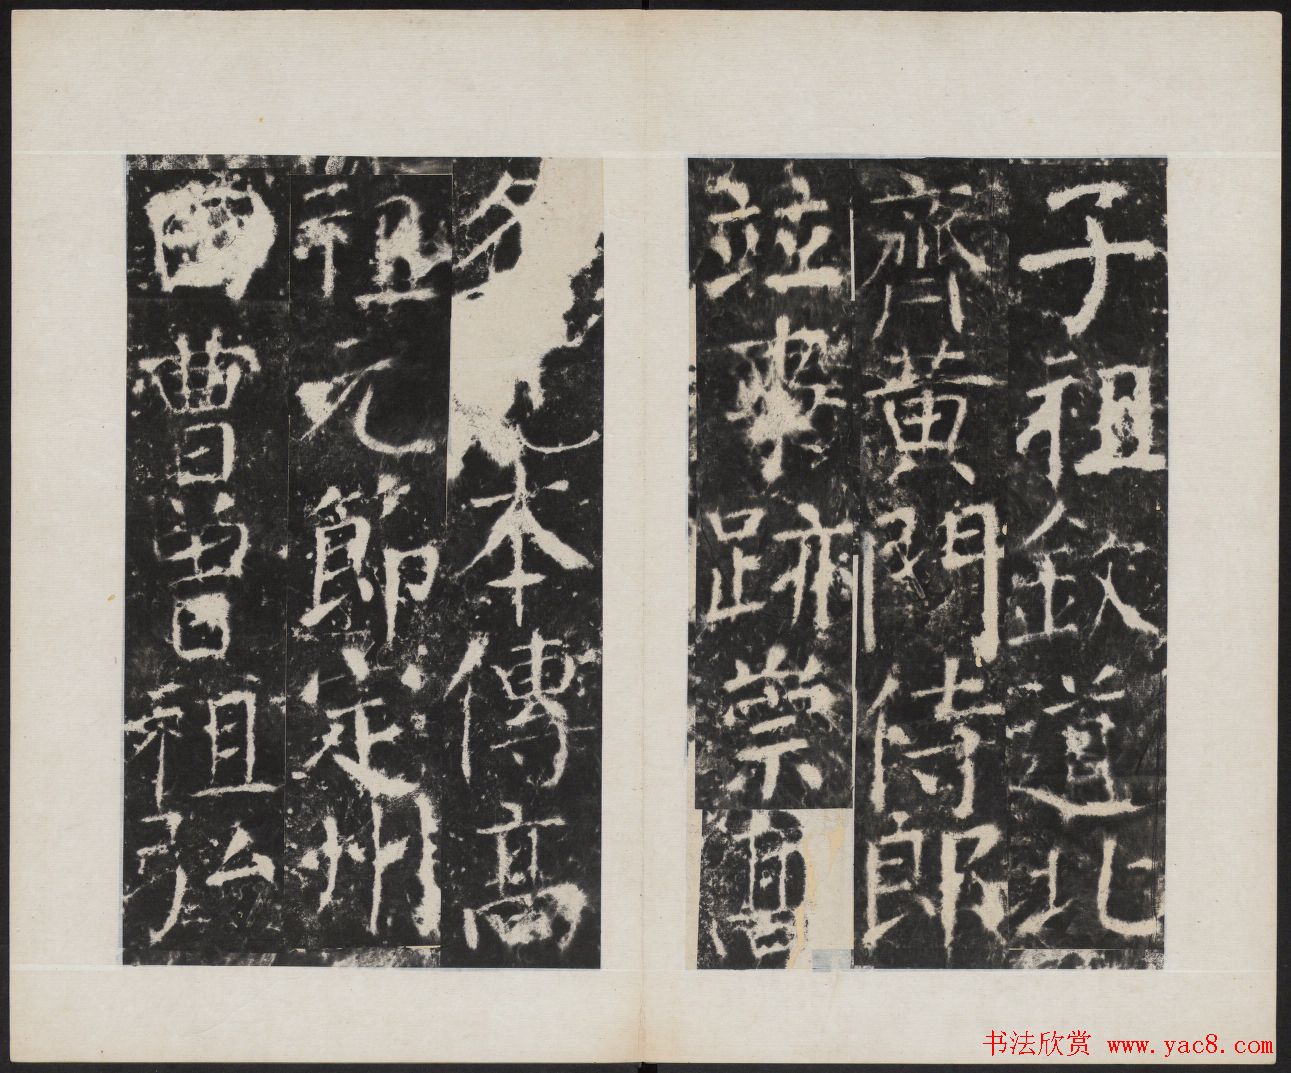 子祖欽道北
齊黃門侍郎
竝跡崇
本傳高
祖元節定州
田曹曾祖弘
书法欣赏 www.yac8.com